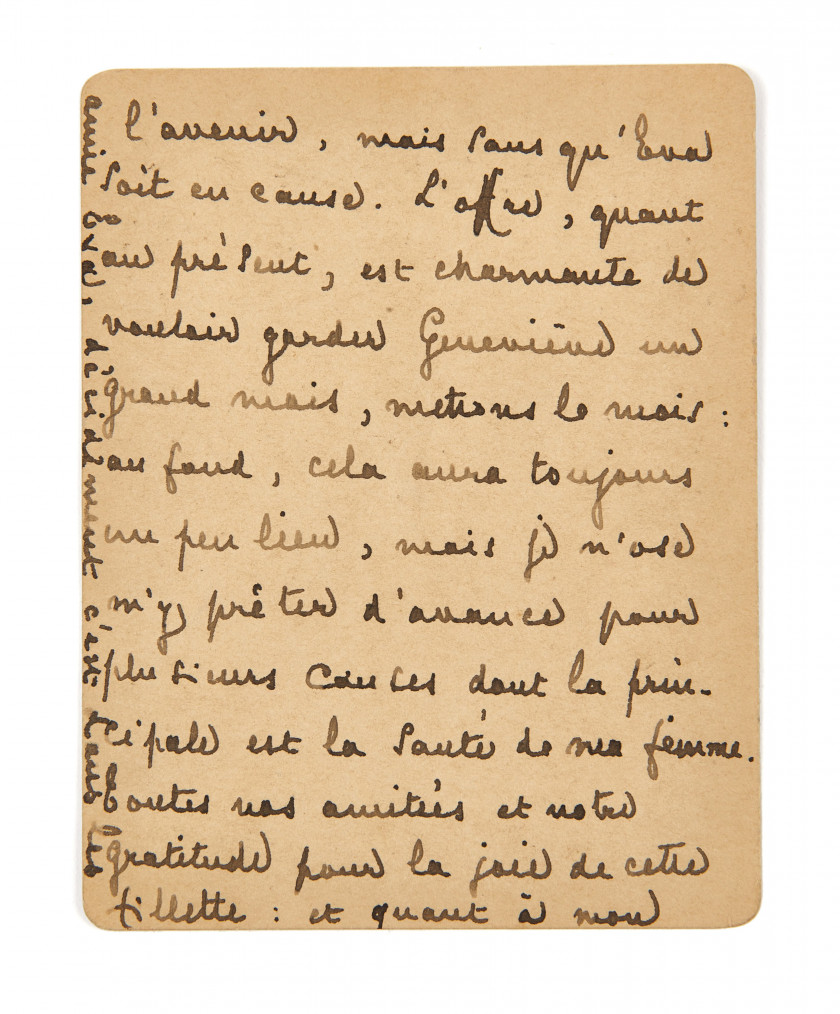 l'avenir, mais sans qu'Eva
soit en cause. L'offre, quant
au présent, est charmante de
vouloir garder Geneviève un
grand mais, mettons le mois :
au fond, cela aura toujours
un peu lieu, mais je n'ose
m'y prêter d'avance pour
plusieurs causes dont la prin-
cipale est la santé de ma femme.
Toutes nos amitiés et notre
gratitude pour la joie de cette
fillette : et quant à mon
amie Eva, décidément c'est dans les